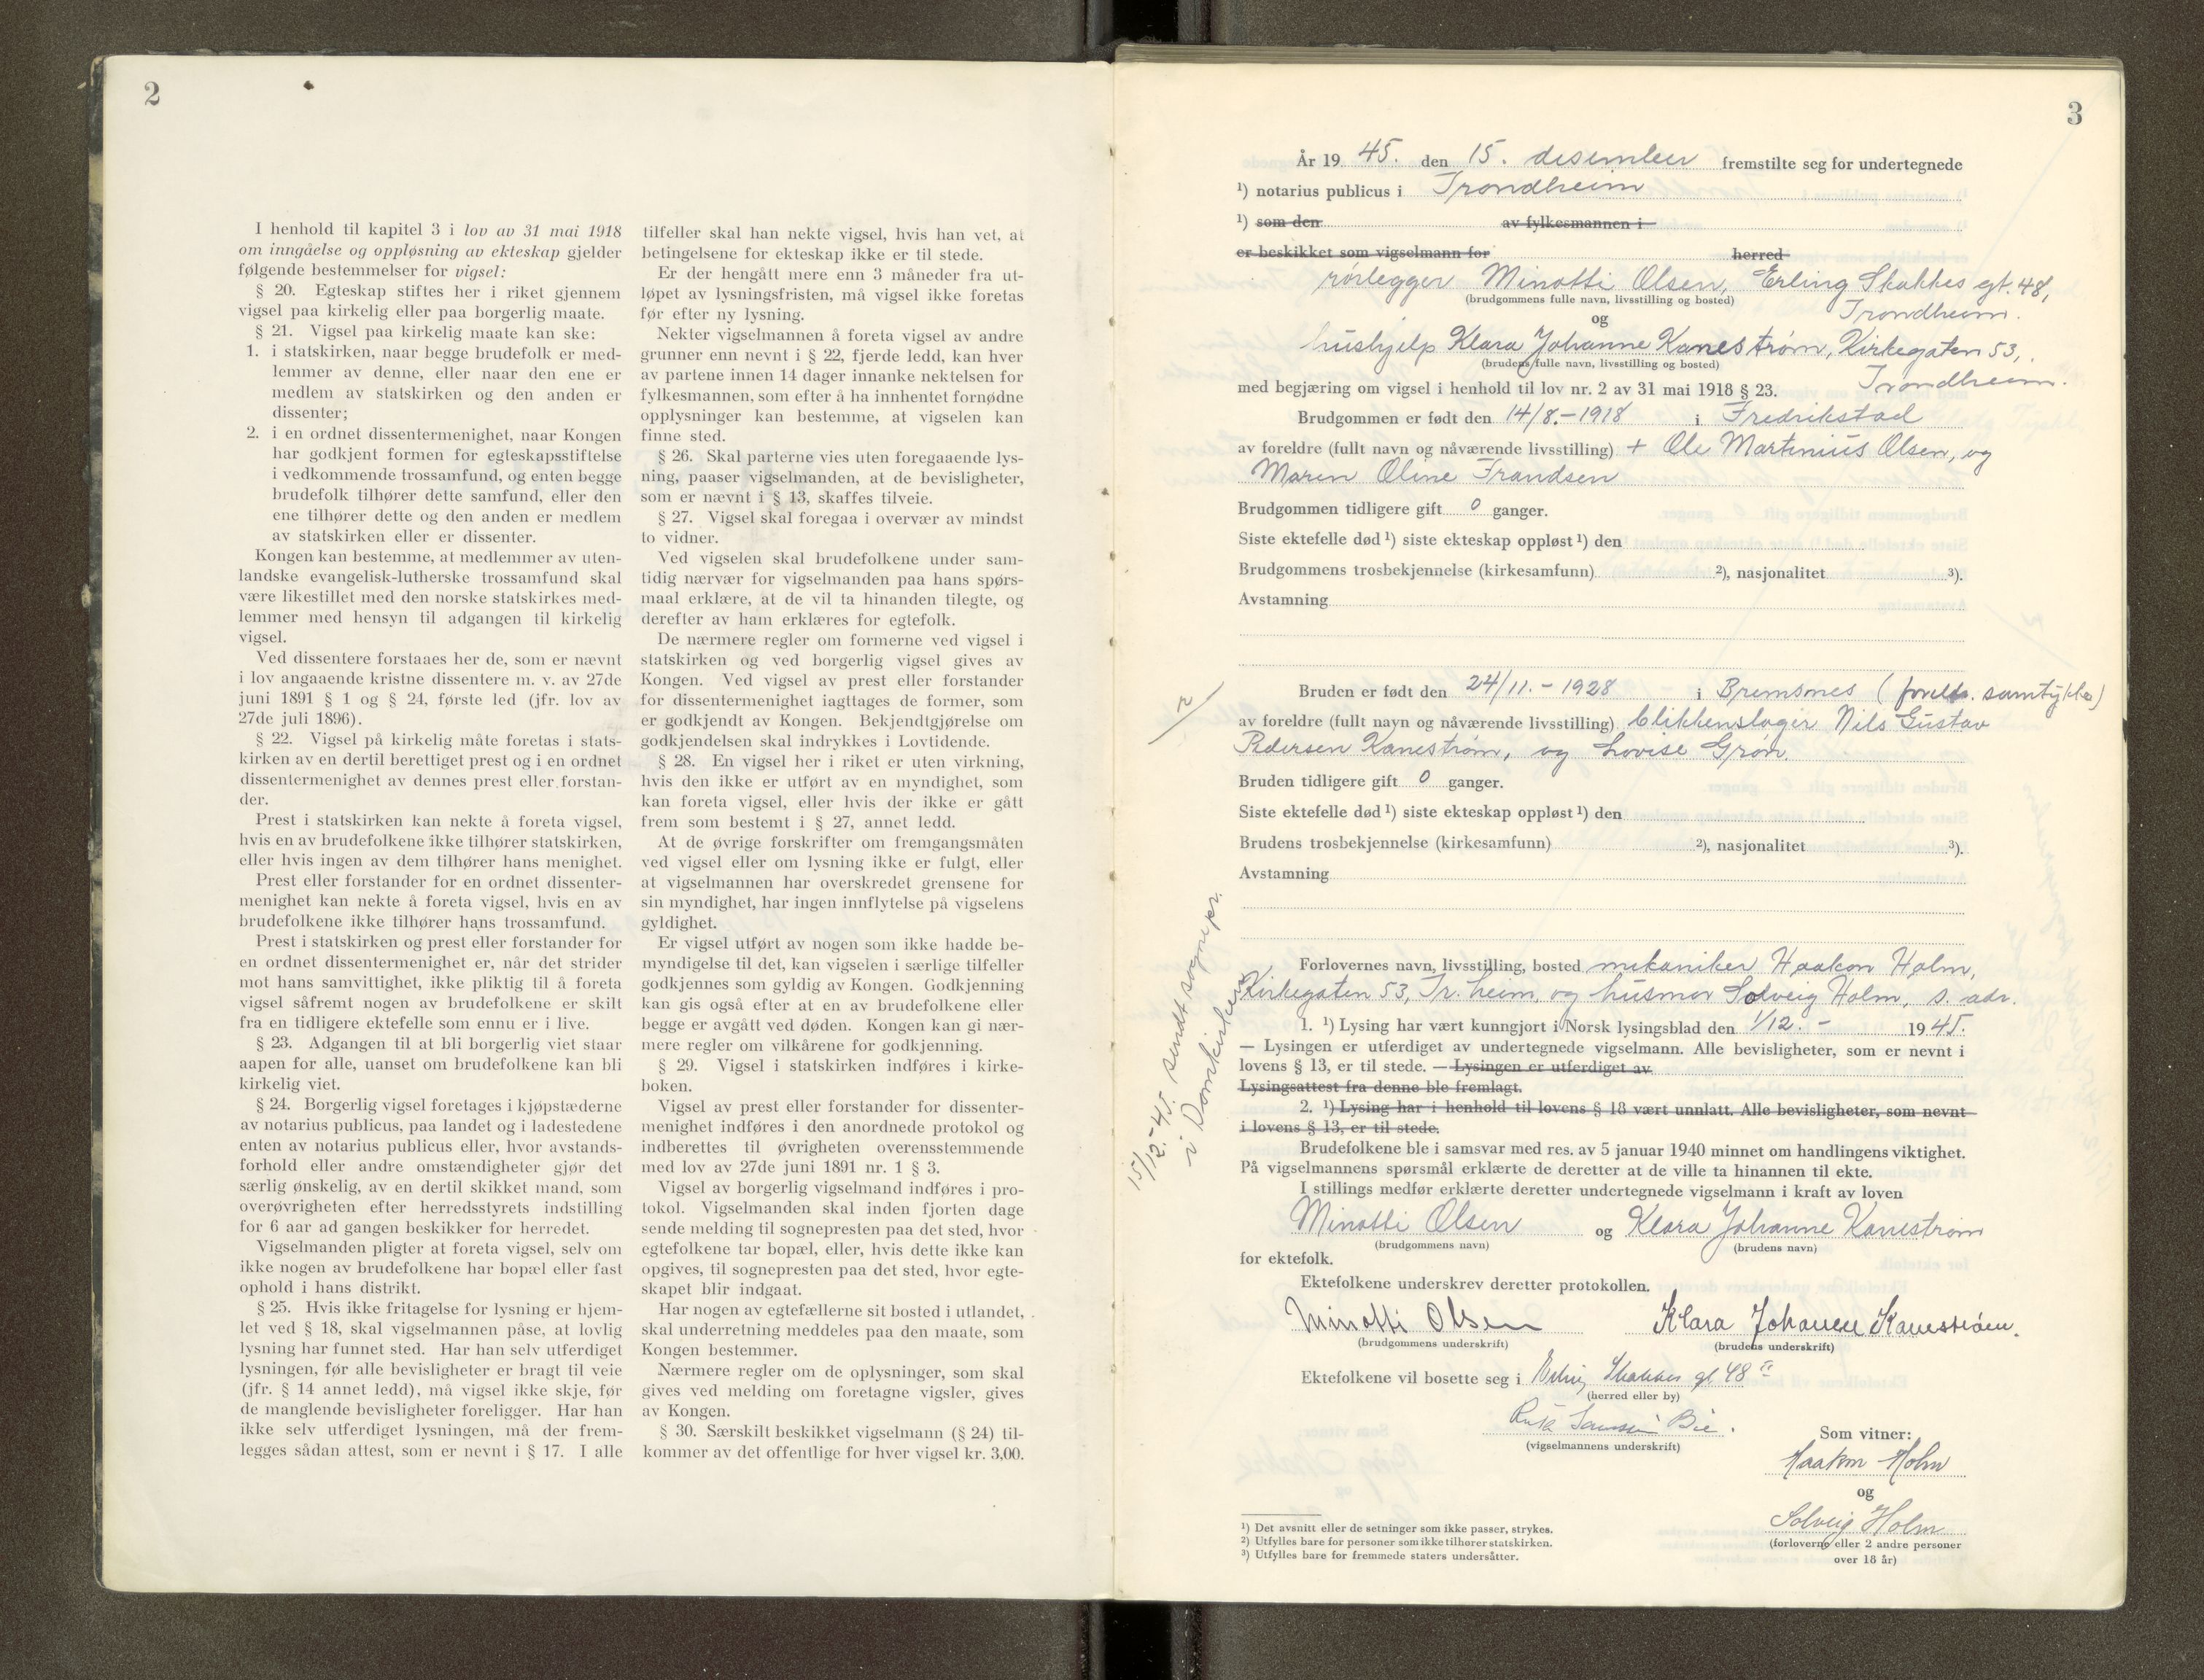 2
I henhold til kapitel 3 i lov av 31 mai 1918
om inngåelse og oppløsning av ekteskap gjelder
følgende bestemmelser for vigsel:
§ 20. Egteskap stiftes her i riket gjennem
vigsel paa kirkelig eller paa borgerlig maate.
§ 21. Vigsel paa kirkelig maate kan ske:
1. i statskirken, naar begge brudefolk er med-
lemmer av denne, eller naar den ene er
medlem av statskirken og den anden er
dissenter;
2. i en ordnet dissentermenighet, naar Kongen
har godkjent formen for egteskapsstiftelse
i vedkommende trossamfund, og enten begge
brudefolk tilhører dette samfund, eller den
ene tilhører dette og den anden er medlem
av statskirken eller er dissenter.
Kongen kan bestemme, at medlemmer av uten-
landske evangelisk-lutherske trossamfund skal
være likestillet med den norske statskirkes med-
lemmer med hensyn til adgangen til kirkelig
vigsel.
Ved dissentere forstaaes her de, som er nævnt
i lov angaaende kristne dissentere m. v. av 27de
juni 1891 § 1 og § 24, første led (jfr. lov av
27de juli 1896).
§ 22. Vigsel på kirkelig måte foretas i stats-
kirken av en dertil berettiget prest og i en ordnet
dissentermenighet av dennes prest eller forstan-
der.
Prest i statskirken kan nekte å foreta vigsel,
hvis en av brudefolkene ikke tilhører statskirken,
eller hvis ingen av dem tilhører hans menighet.
Prest eller forstander for en ordnet dissenter-
menighet kan nekte å foreta vigsel, hvis en av
brudefolkene ikke tilhører hans trossamfund.
Prest i statskirken og prest eller forstander for
en ordnet dissentermenighet er, når det strider
mot hans samvittighet, ikke pliktig til å foreta
vigsel såfremt nogen av brudefolkene er skilt
fra en tidligere ektefelle som ennu er i live.
§ 23. Adgangen til at bli borgerlig viet staar
aapen for alle, uanset om brudefolkene kan bli
kirkelig viet.
§ 24. Borgerlig vigsel foretages i kjøpstæderne
av notarius publicus, paa landet og i ladestedene
enten av notarius publicus eller, hvor avstands-
forhold eller andre omstændigheter gjør det
særlig ønskelig, av en dertil skikket mand, som
overøvrigheten efter herredsstyrets indstilling
for 6 aar ad gangen beskikker for herredet.
Vigselmanden pligter at foreta vigsel, selv om
ikke nogen av brudefolkene har bopæl eller fast
ophold i hans distrikt.
§ 25. Hvis ikke fritagelse for lysning er hjem-
let ved § 18, skal vigselmannen påse, at lovlig
lysning har funnet sted. Har han selv utferdiget
lysningen, før alle bevisligheter er bragt til veie
(jfr. § 14 annet ledd), må vigsel ikke skje, før
de manglende bevisligheter foreligger. Har han
ikke selv utferdiget lysningen, må der frem-
legges sådan attest, som er nevnt i § 17. I alle
tilfeller skal han nekte vigsel, hvis han vet, at
betingelsene for ekteskap ikke er til stede.
Er der hengått mere enn 3 måneder fra ut-
løpet av lysningsfristen, må vigsel ikke foretas
før efter ny lysning.
Nekter vigselmannen å foreta vigsel av andre
grunner enn nevnt i § 22, fjerde ledd, kan hver
av partene innen 14 dager innanke nektelsen for
fylkesmannen, som efter å ha innhentet fornødne
opplysninger kan bestemme, at vigselen kan
finne sted.
§ 26. Skal parterne vies uten foregaaende lys-
ning, paaser vigselmanden, at de bevisligheter,
som er nævnt i § 13, skaffes tilveie.
§ 27. Vigsel skal foregaa i overvær av mindst
to vidner.
Ved vigselen skal brudefolkene under sam-
tidig nærvær for vigselmanden paa hans spørs-
maal erklære, at de vil ta hinanden tilegte, og
derefter av ham erklæres for egtefolk.
De nærmere regler om formerne ved vigsel i
statskirken og ved borgerlig vigsel gives av
Kongen. Ved vigsel av prest eller forstander
for dissentermenighet iagttages de former, som
er godkjendt av Kongen. Bekjendtgjørelse om
godkjendelsen skal indrykkes i Lovtidende.
§ 28. En vigsel her i riket er uten virkning,
hvis den ikke er utført av en myndighet, som
kan foreta vigsel, eller hvis der ikke er gått
frem som bestemt i § 27, annet ledd.
At de øvrige forskrifter om fremgangsmåten
ved vigsel eller om lysning ikke er fulgt, eller
at vigselmannen har overskredet grensene for
sin myndighet, har ingen innflytelse på vigselens
gyldighet.
Er vigsel utført av nogen som ikke hadde be-
myndigelse til det, kan vigselen i særlige tilfeller
godkjennes som gyldig av Kongen. Godkjenning
kan gis også efter at en av brudefolkene eller
begge er avgått ved døden. Kongen kan gi nær-
mere regler om vilkårene for godkjenning.
§ 29. Vigsel i statskirken indføres i kirke-
boken.
Vigsel av prest eller forstander for dissenter-
menighet indføres i den anordnede protokol og
indberettes til øvrigheten overensstemmende
med lov av 27de juni 1891 nr. 1 § 3.
Vigsel av borgerlig vigselmand indføres i pro-
tokol. Vigselmanden skal inden fjorten dage
sende melding til sognepresten paa det sted, hvor
egtefolkene tar bopæl, eller, hvis dette ikke kan
opgives, til sognepresten paa det sted, hvor egte-
skapet blir indgaat.
Har nogen av egtefællerne sit bosted i utlandet,
skal underretning meddeles paa den maate, som
Kongen bestemmer.
Nærmere regler om de oplysninger, som skal
gives ved melding om foretagne vigsler, gives
av Kongen.
§ 30. Særskilt beskikket vigselmann (§ 24) til-
kommer av det offentlige for hver vigsel kr. 3,00.
3
År 19 45. den 15. desember fremstilte seg for undertegnede
¹) notarius publicus i Trondheim
¹) som den av fylkesmannen i
er beskikket som vigselmann for herred
rørlegger Minotti Olsen, Erling Skakkes gt. 48,
(brudgommens fulle navn, livsstilling og bosted)
Trondheim.
og
hushjelp Klara Johanne Kanestrøm, Kirkegaten 53,
(brudens fulle navn, livsstilling og bosted)
Trondheim.
med begjæring om vigsel i henhold til lov nr. 2 av 31 mai 1918 § 23.
Brudgommen er født den 14/8.-1918 i Fredrikstad
av foreldre (fullt navn og nåværende livsstilling) + Ole Martinius Olsen, og
Maren Oline Frandsen
Brudgommen tidligere gift 0 ganger.
Siste ektefelle død ¹) siste ekteskap oppløst ¹) den
Brudgommens trosbekjennelse (kirkesamfunn) ²), nasjonalitet ³).
Avstamning
2/
Bruden er født den 24/11.-1928 i Bremsnes (foreldr. samtykke)
av foreldre (fullt navn og nåværende livsstilling) blikkenslager Nils Gustav
Pedersen Kanestrøm, og Lovise Grøn.
Bruden tidligere gift 0 ganger.
Siste ektefelle død ¹) siste ekteskap oppløst ¹) den
Brudens trosbekjennelse (kirkesamfunn) ²), nasjonalitet ³).
Avstamning
Forlovernes navn, livsstilling, bosted mekaniker Haakon Holm,
Kirkegaten 53, Tr.heim, og husmor Solveig Holm, s. adr.
1. ¹) Lysing har vært kunngjort i Norsk lysingsblad den 1/12. - 1945.
— Lysingen er utferdiget av undertegnede vigselmann. Alle bevisligheter, som er nevnt i
lovens § 13, er til stede. — Lysingen er utferdiget av
Lysingsattest fra denne ble fremlagt.
2. ¹) Lysing har i henhold til lovens § 18 vært unnlatt. Alle bevisligheter, som nevnt
i lovens § 13, er til stede.
15/12.-45. sendt sognepr.
i Domkirken
Brudefolkene ble i samsvar med res. av 5 januar 1940 minnet om handlingens viktighet.
På vigselmannens spørsmål erklærte de deretter at de ville ta hinannen til ekte.
I stillings medfør erklærte deretter undertegnede vigselmann i kraft av loven
Minotti Olsen og Klara Johanne Kanestrøm
(brudgommens navn) (brudens navn)
for ektefolk.
Ektefolkene underskrev deretter protokollen.
Minotti Olsen Klara Johanne Kanestrøm.
(brudgommens underskrift) (brudens underskrift)
Ektefolkene vil bosette seg i Erling Skakkes gt 48
(herred eller by)
Bie.
(vigselmannens underskrift)
Som vitner:
Haakon Holm
og
Solveig Holm
(forloverne eller 2 andre personer
over 18 år)
¹) Det avsnitt eller de setninger som ikke passer, strykes.
²) Utfylles bare for personer som ikke tilhører statskirken.
³) Utfylles bare for fremmede staters undersåtter.